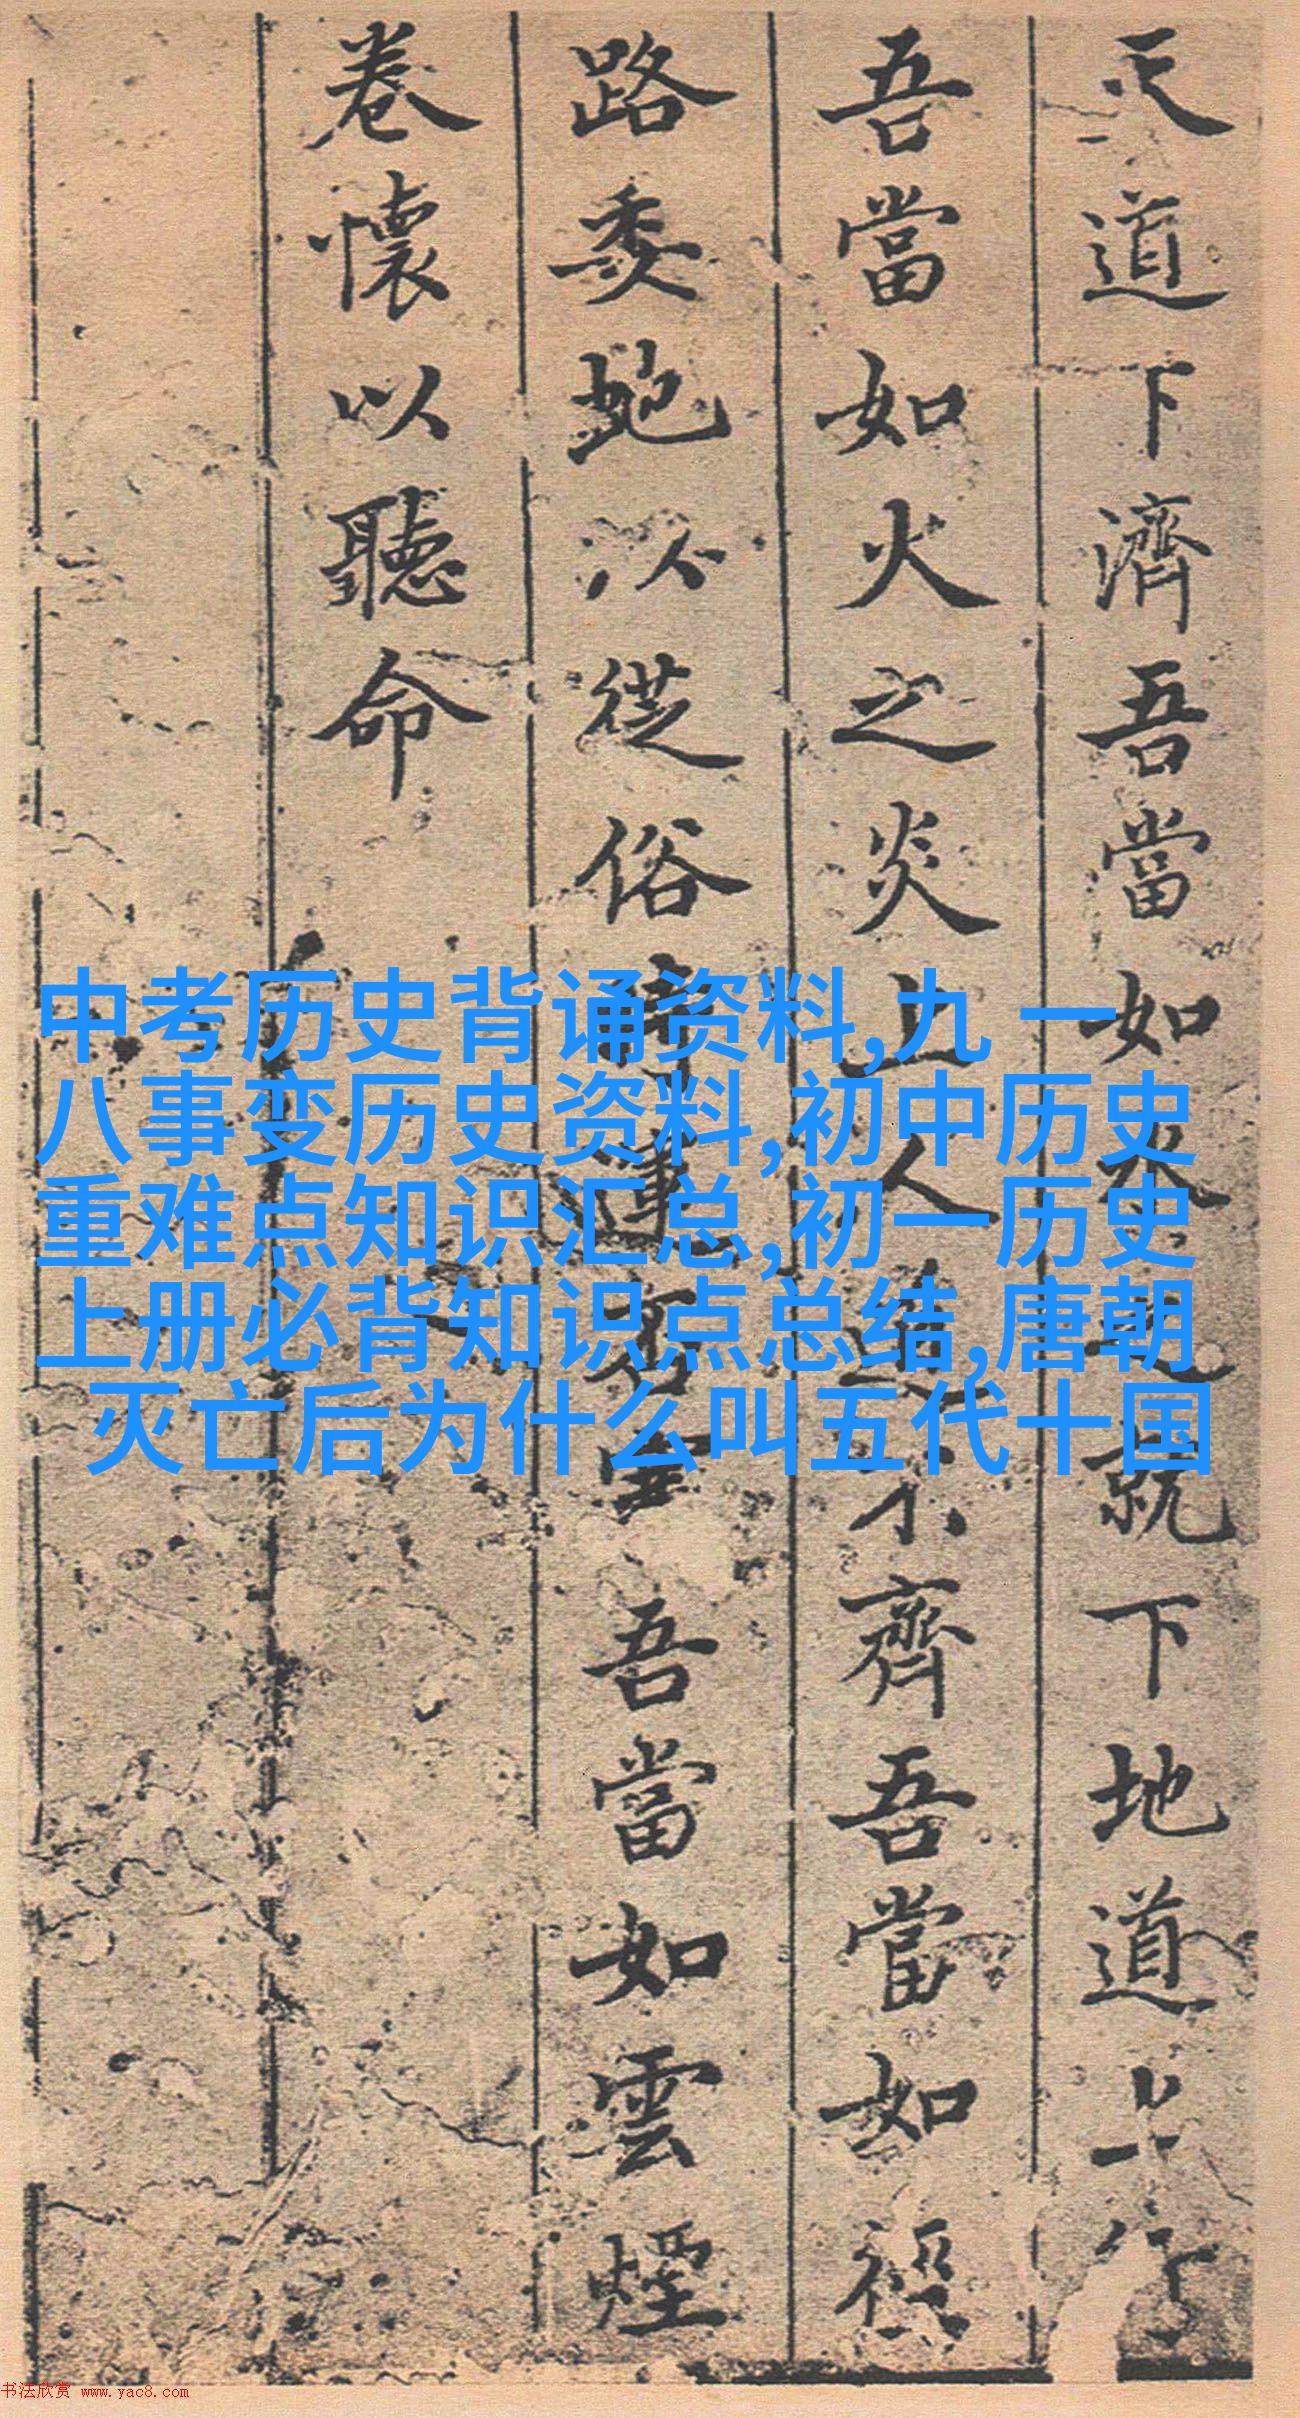 天道下濟吾當如水之就下地道上行
吾當如火之炎上人道不齊吾當如
路委虵以從俗運有吾當如雲煙
卷懷以聽命
中考历史背诵资料,九 一
八事变历史资料,初中历史
重难点知识汇总,初一历史
上册必背知识点总结,唐朝
灭亡后为什么叫五代十国
书法欣赏 www.yac8.com